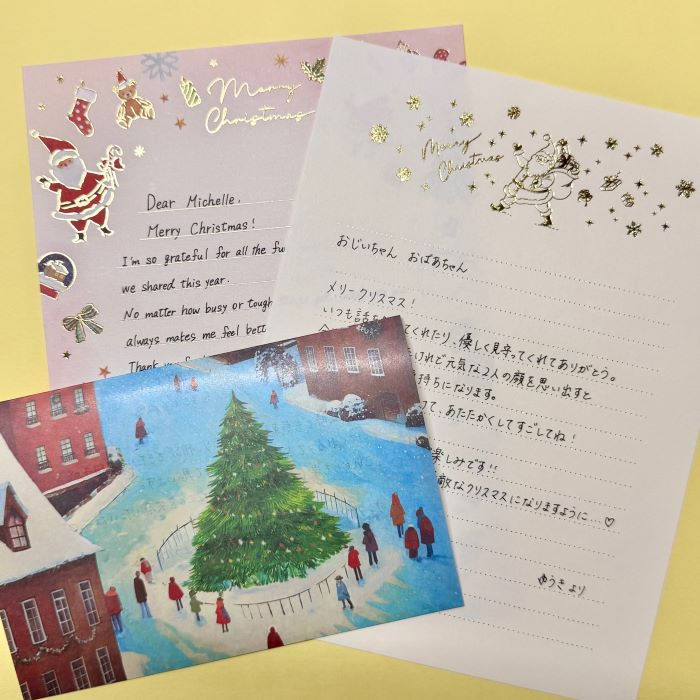 Merry Christmas
Dear Michelle,
Merry Christmas!
I'm so grateful for all the fu
we shared this year.
No matter how busy or toug
always makes me feel bett
Merry Christmas
おじいちゃん おばあちゃん
メリークリスマス!
いつも話を くれたり、優しく見守ってくれてありがとう。
けれど元気な2人の顔を思い出すと
持ちになります。
て、あたたかくしてすごしてね!
楽しみです!!
敵なクリスマスになりますように ♡
ゆうきより